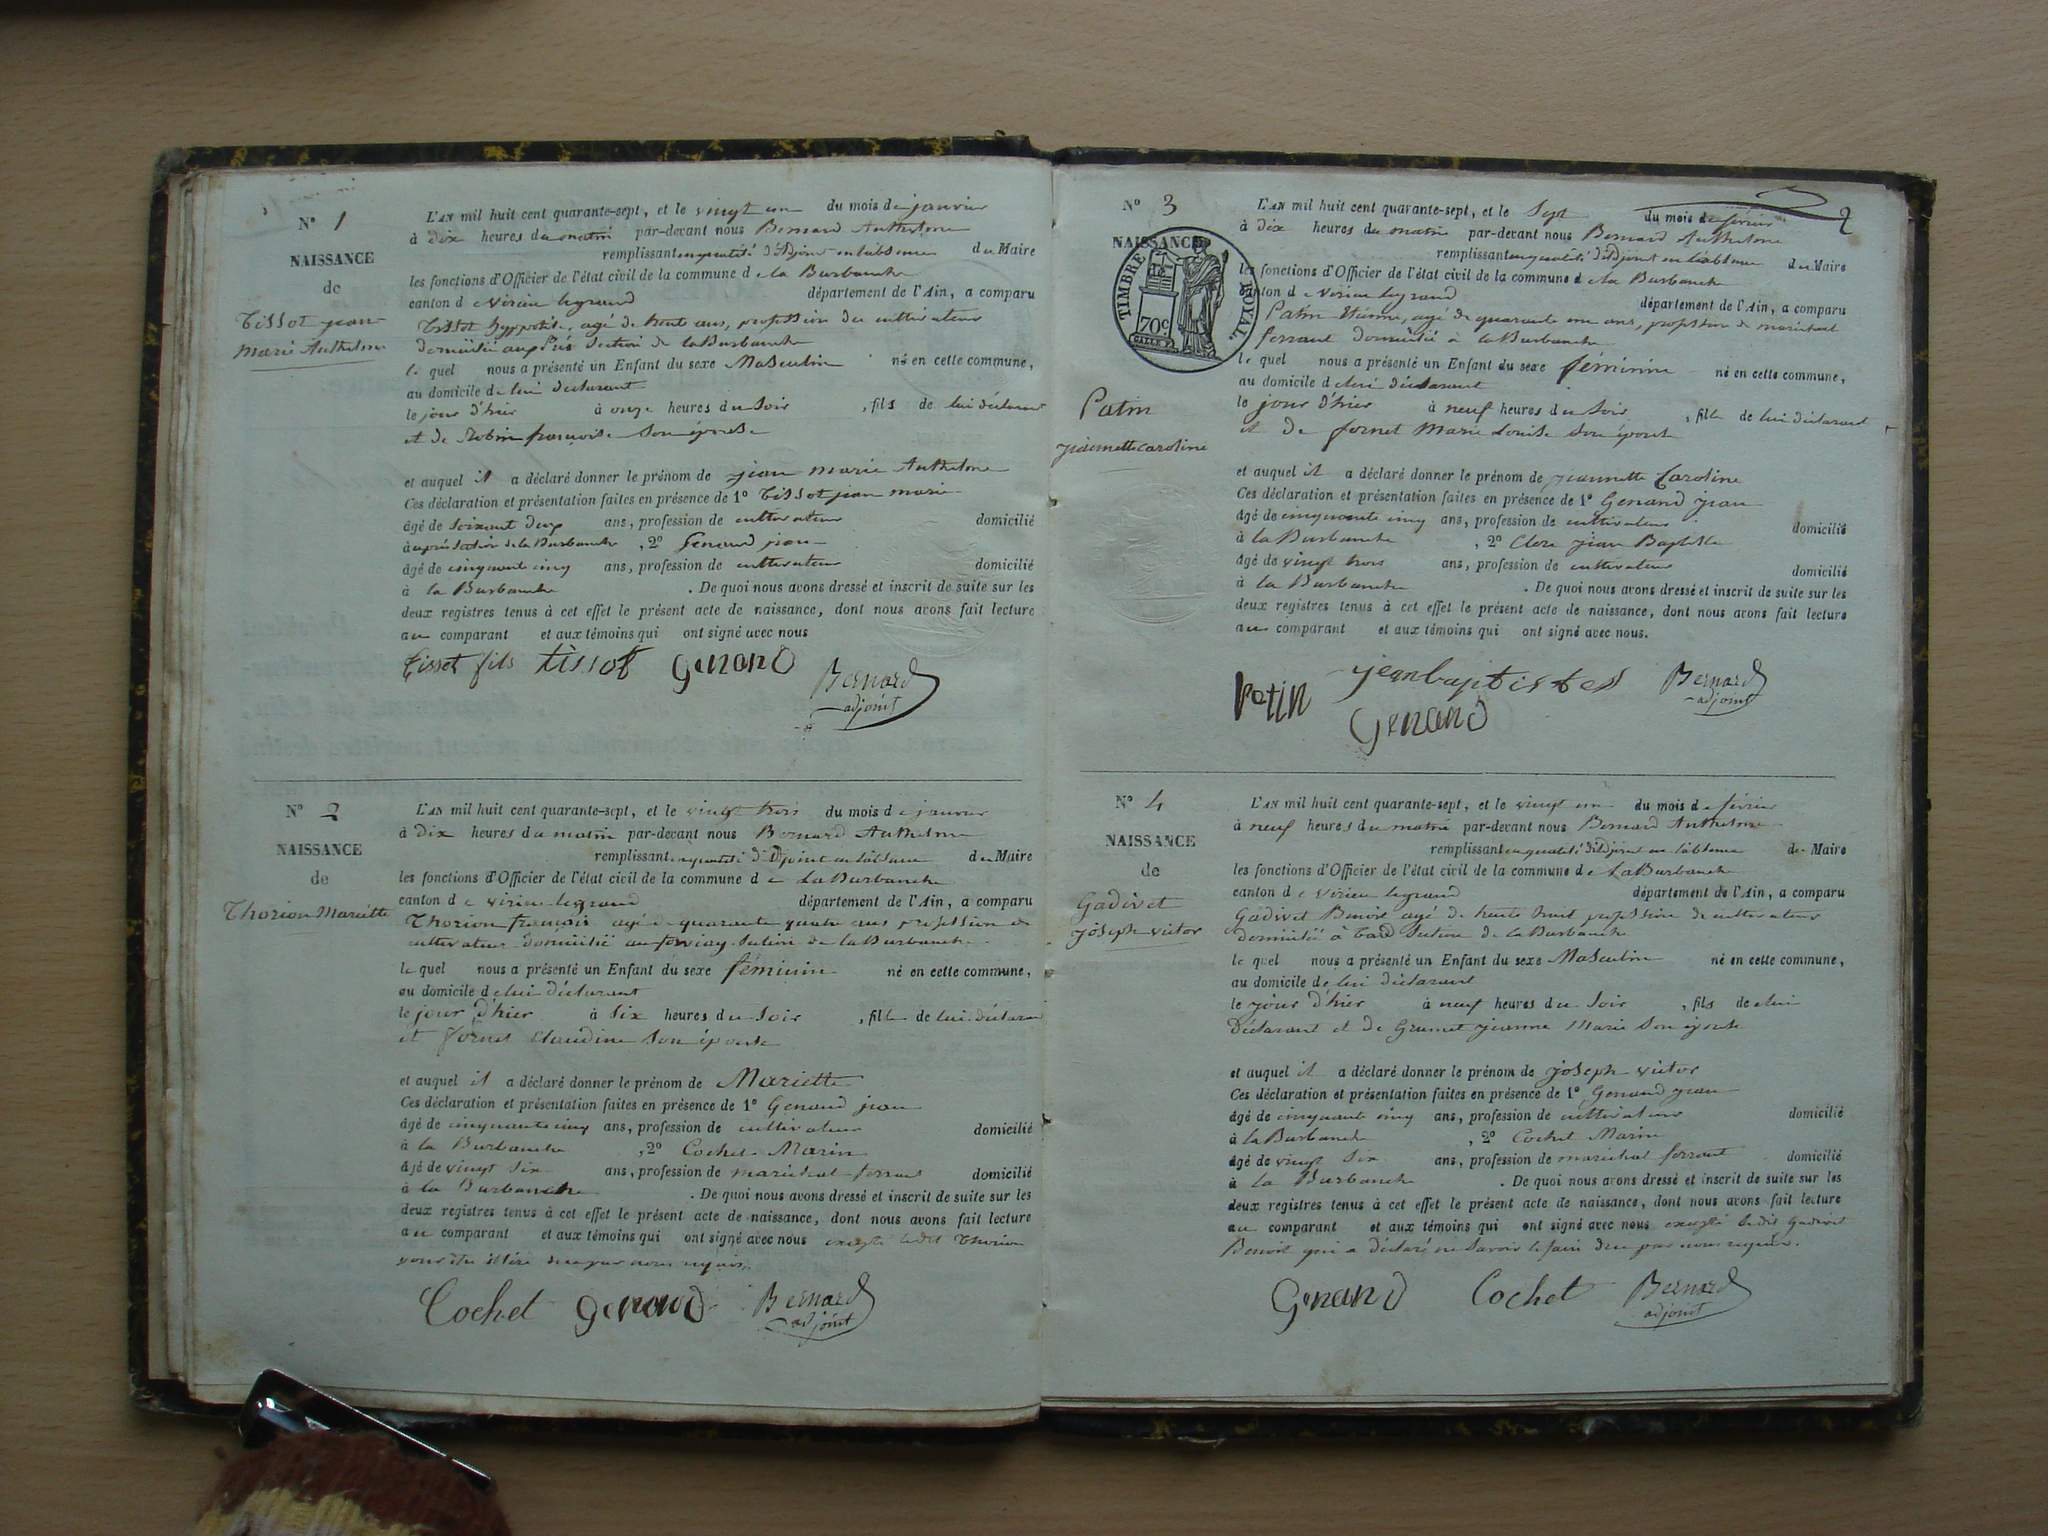 N° 1
NAISSANCE
de
Tissot jean
Marie Anthelme
L'AN mil huit cent quarante-sept, et le vingt un du mois de janvier
à dix heures du matin par-devant nous Bernard Anthelme
remplissant en qualité d'Adjoint en l'absence du Maire
les fonctions d'Officier de l'état civil de la commune de la Burbanche
canton de Virieu legrand département de l'Ain, a comparu
Tissot hyppolite, agé de trente ans, profession de cultivateur
domicilié aux Prés Section de la Burbanche
le quel nous a présenté un Enfant du sexe Masculin né en cette commune,
au domicile de lui déclarant
le jour d'hier à onze heures du Soir, fils de lui déclarant
et de Robin françoise Son épouse
et auquel il a déclaré donner le prénom de jean marie Anthelme
Ces déclaration et présentation faites en présence de 1° Tissot jean marie
âgé de Soixante deux ans, profession de cultivateur domicilié
à Section de la Burbanche, 2° Genand jean
âgé de cinquante cinq ans, profession de cultivateur domicilié
à la Burbanche. De quoi nous avons dressé et inscrit de suite sur les
deux registres tenus à cet effet le présent acte de naissance, dont nous avons fait lecture
au comparant et aux témoins qui ont signé avec nous
tissot fils tissot Genand Bernard
adjoint
N° 2
NAISSANCE
de
Thorion Mariette
L'AN mil huit cent quarante-sept, et le vingt trois du mois de janvier
à dix heures du matin par-devant nous Bernard Anthelme
remplissant en qualité d'Adjoint en l'absence du Maire
les fonctions d'Officier de l'état civil de la commune de La Burbanche
canton de Virieu legrand département de l'Ain, a comparu
Thorion françois agé de quarante quatre ans profession de
cultivateur domicilié au Section de la Burbanche
le quel nous a présenté un Enfant du sexe féminin né en cette commune,
au domicile de lui déclarant
le jour d'hier à Six heures du Soir, fille de lui déclarant
et fornet Claudine Son épouse
et auquel il a déclaré donner le prénom de Mariette
Ces déclaration et présentation faites en présence de 1° Genand jean
âgé de cinquante cinq ans, profession de cultivateur domicilié
à la Burbanche, 2° Cochet Marin
âgé de vingt Six ans, profession de maréchal ferrant domicilié
à la Burbanche. De quoi nous avons dressé et inscrit de suite sur les
deux registres tenus à cet effet le présent acte de naissance, dont nous avons fait lecture
au comparant et aux témoins qui ont signé avec nous excepté ledit Thorion
pour être illéré de ce par nous requis.
Cochet Genand Bernard
adjoint
2
N° 3
NAISSANCE
TIMBRE ROYAL
70c
Patin
jeannette caroline
L'AN mil huit cent quarante-sept, et le Sept du mois de février
à dix heures du matin par-devant nous Bernard Anthelme
remplissant en qualité d'Adjoint en l'absence du Maire
les fonctions d'Officier de l'état civil de la commune de la Burbanche
canton de Virieu legrand département de l'Ain, a comparu
Patin Etienne, agé de quarante un ans, profession de maréchal
ferrant domicilié à la Burbanche
le quel nous a présenté un Enfant du sexe féminin né en cette commune,
au domicile de lui déclarant
le jour d'hier à neuf heures du Soir, fille de lui déclarant
et de fornet Marie Louise Son épouse
et auquel il a déclaré donner le prénom de jeannette Caroline
Ces déclaration et présentation faites en présence de 1° Genand jean
âgé de cinquante cinq ans, profession de cultivateur domicilié
à la Burbanche, 2° jean Baptiste
âgé de vingt trois ans, profession de cultivateur domicilié
à la Burbanche. De quoi nous avons dressé et inscrit de suite sur les
deux registres tenus à cet effet le présent acte de naissance, dont nous avons fait lecture
au comparant et aux témoins qui ont signé avec nous.
Patin jeanbaptiste Bernard
adjoint
Genand
N° 4
NAISSANCE
de
Gadivet
joseph victor
L'AN mil huit cent quarante-sept, et le vingt un du mois de février
à neuf heures du matin par-devant nous Bernard Anthelme
remplissant en qualité d'Adjoint en l'absence du Maire
les fonctions d'Officier de l'état civil de la commune de La Burbanche
canton de Virieu legrand département de l'Ain, a comparu
Gadivet Benoit agé de trente huit profession de cultivateur
domicilié à Section de la Burbanche
le quel nous a présenté un Enfant du sexe Masculin né en cette commune,
au domicile de lui déclarant
le jour d'hier à neuf heures du Soir, fils de lui
déclarant et de Grumet jeanne Marie Son épouse
et auquel il a déclaré donner le prénom de joseph victor
Ces déclaration et présentation faites en présence de 1° Genand jean
âgé de cinquante cinq ans, profession de cultivateur domicilié
à la Burbanche, 2° Cochet Marin
âgé de vingt Six ans, profession de maréchal ferrant domicilié
à la Burbanche. De quoi nous avons dressé et inscrit de suite sur les
deux registres tenus à cet effet le présent acte de naissance, dont nous avons fait lecture
au comparant et aux témoins qui ont signé avec nous excepté ledit Gadivet
Benoit qui a déclaré ne Savoir le faire de ce par nous requis.
Genand Cochet Bernard
adjoint